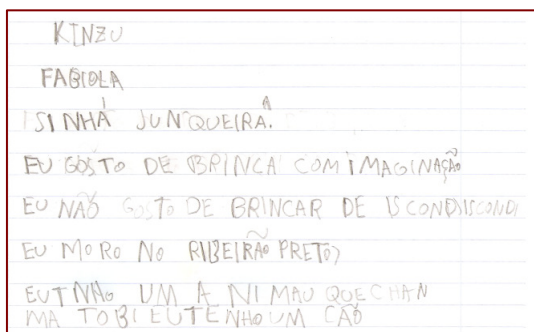 KINZU
FABIOLA
ISINHÁ JUNQUEIRA.
EU GOSTO DE BRINCA COM IMAGINAÇÃO
EU NÃO GOSTO DE BRINCAR DE ISCONDISCONDI
EU MORO NO RIBEIRÃO PRETO
EUTNHAO UM A NI MAU QUE CHAN
MA TOBI EUTENHO UM CÃO